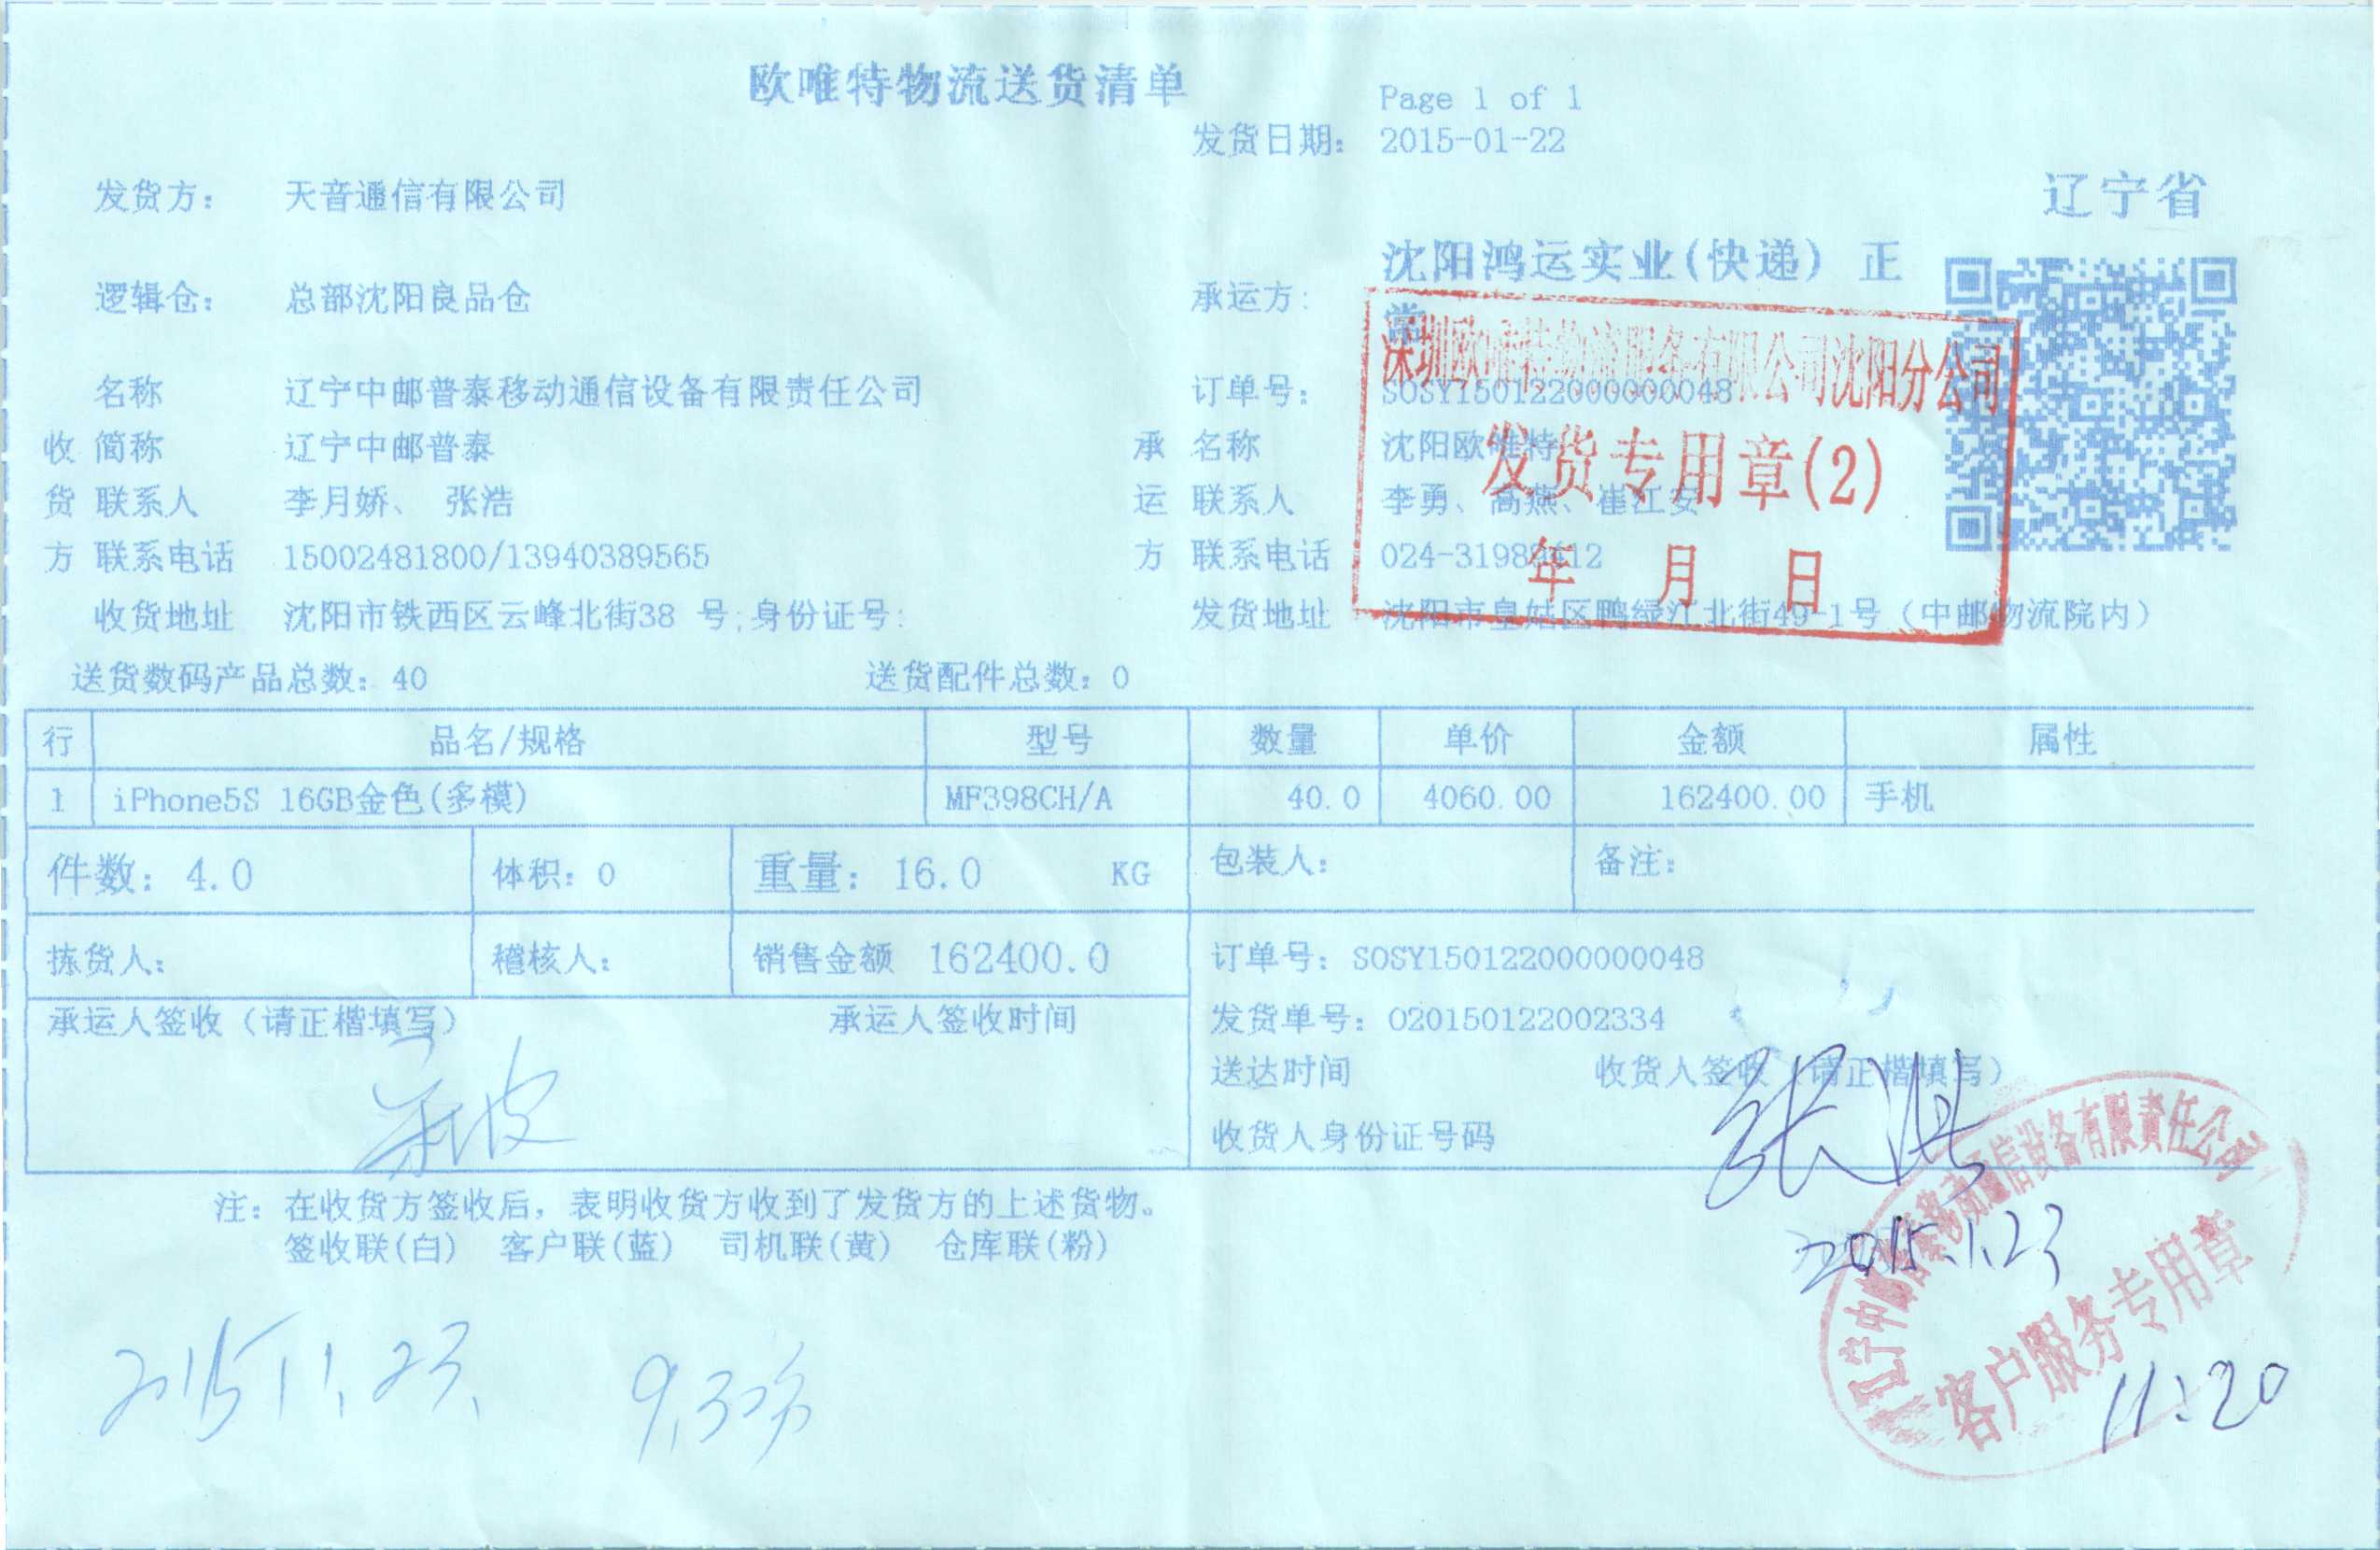 欧唯特物流送货清单
Page 1 of 1
发货日期: 2015-01-22
发货方: 天音通信有限公司
辽宁省
逻辑仓: 总部沈阳良品仓
承运方: 沈阳鸿运实业(快递) 正
常
深圳欧唯特物流服务有限公司沈阳分公司
发货专用章(2)
年 月 日
名称 辽宁中邮普泰移动通信设备有限责任公司
订单号: SOSY150122000000048
收 简称 辽宁中邮普泰
承 名称 沈阳欧唯特
货 联系人 李月娇、 张浩
运 联系人 李勇、高燕、崔江安
方 联系电话 15002481800/13940389565
方 联系电话
收货地址 沈阳市铁西区云峰北街38 号;身份证号:
发货地址 沈阳市皇姑区鸭绿江北街49-1号(中邮物流院内)
送货数码产品总数: 40 送货配件总数: 0
行 品名/规格 型号 数量 单价 金额 属性
1 iPhone5S 16GB金色(多模) MF398CH/A 40.0 4060.00 162400.00 手机
件数: 4.0 体积: 0 重量: 16.0 KG 包装人: 备注:
拣货人: 稽核人: 销售金额 162400.0 订单号: SOSY150122000000048
承运人签收(请正楷填写) 承运人签收时间 发货单号: 020150122002334
送达时间 收货人签收(请正楷填写)
收货人身份证号码
张浩
注: 在收货方签收后, 表明收货方收到了发货方的上述货物。
签收联(白) 客户联(蓝) 司机联(黄) 仓库联(粉)
2015.1.23
辽宁中邮普泰移动通信设备有限责任公司
客户服务专用章
2015.1.23. 9.30分
11:20